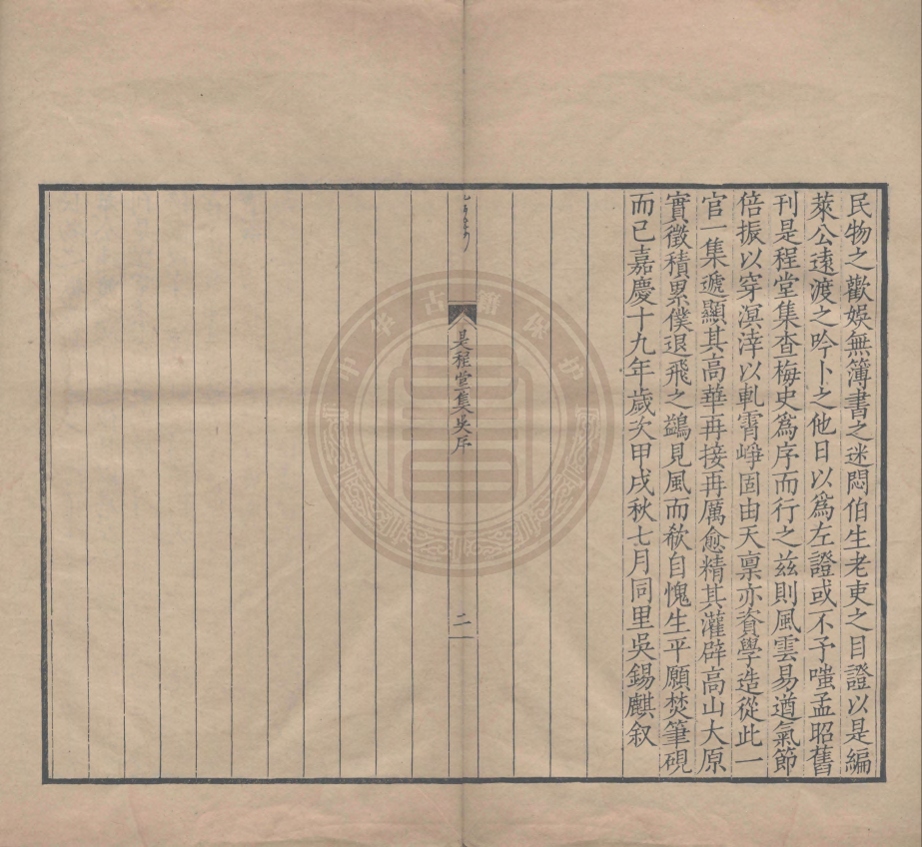 民物之歡娛無簿書之迷悶伯生老吏之目證以是編
萊公遠渡之吟卜之他日以爲左證或不予嗤孟昭舊
刊是程堂集査梅史爲序而行之兹則風雲易遒氣節
倍振以穿溟涬以軋霄崢固由天禀亦資學造從此一
官一集遞顯其高華再接再厲愈精其灌辟高山大原
實徵積累僕退飛之鷁見風而欷自愧生平願焚筆硯
而已嘉慶十九年歲次甲戌秋七月同里吳錫麒叙
是程堂集吳序
二